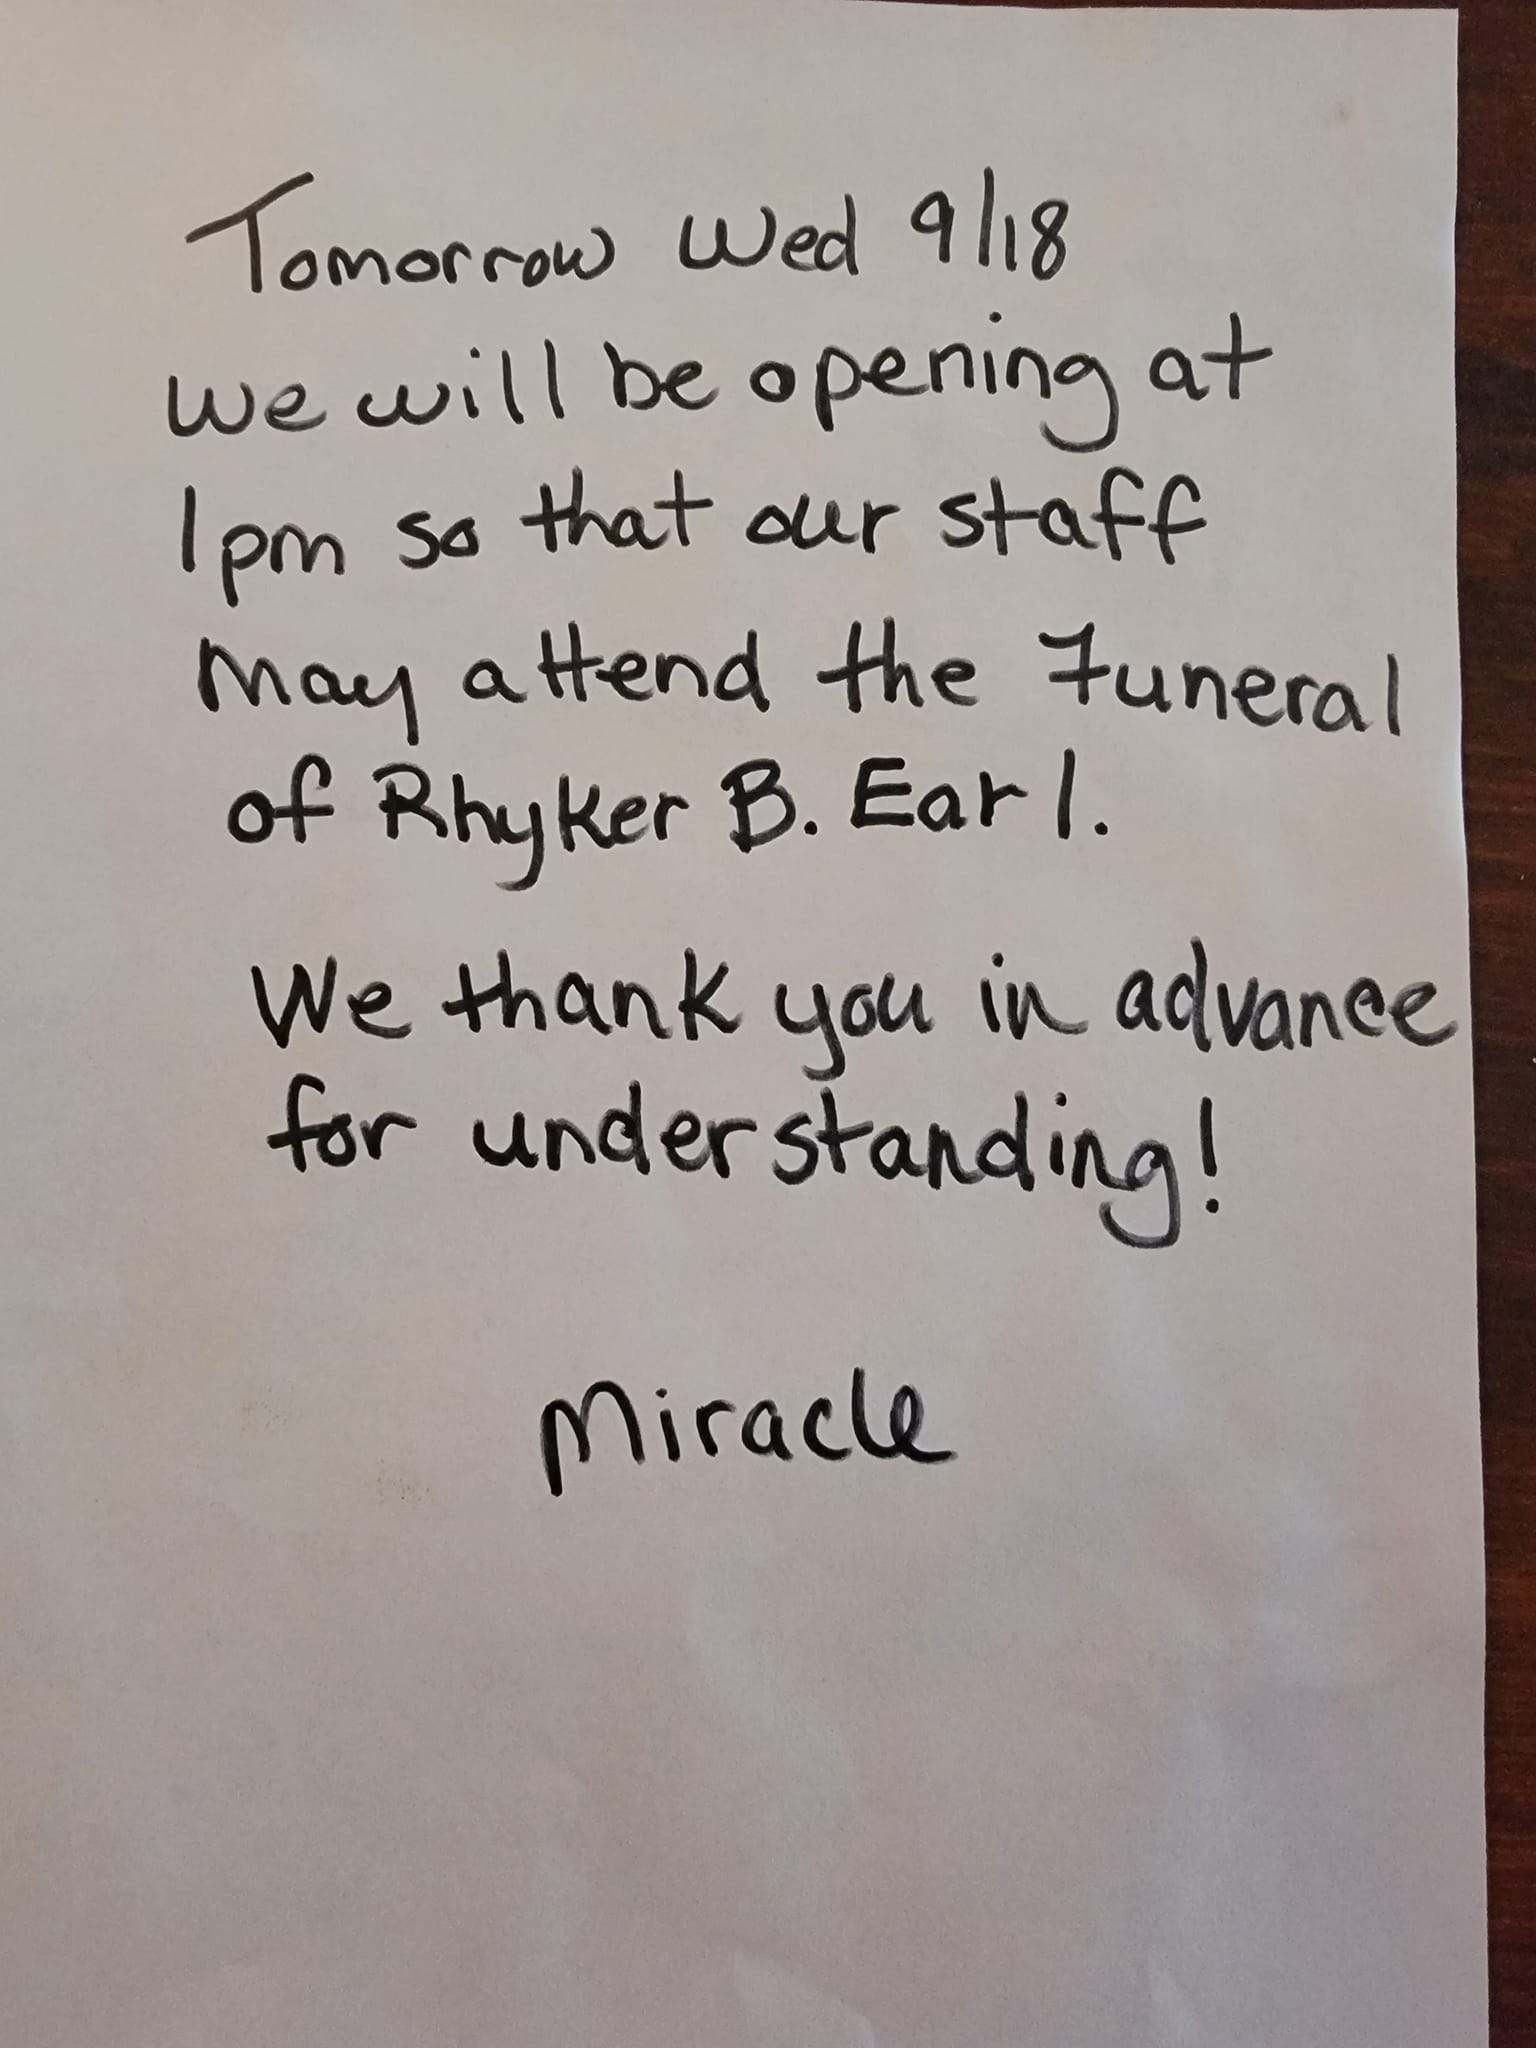 Tomorrow Wed 9/18
we will be opening at
1pm so that our staff
may attend the Funeral
of Rhyker B. Earl.
We thank you in advance
for understanding!
Miracle